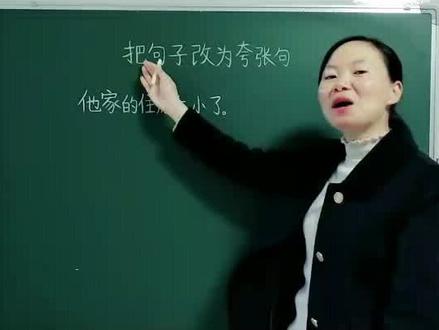 把句子改为夸张句
他家的住小了。